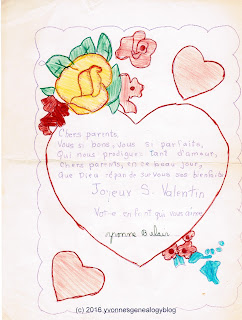 Chers parents
Vous si bons, vous si parfaits,
Qui nous prodiguez tant d'amour,
Chers parents, en ce beau jour,
Que Dieu répande sur vous ses bienfaits
Joyeux S. Valentin
Votre enfant qui vous aime
Yvonne Belair
(c) 2016 yvonnesgenealogyblog